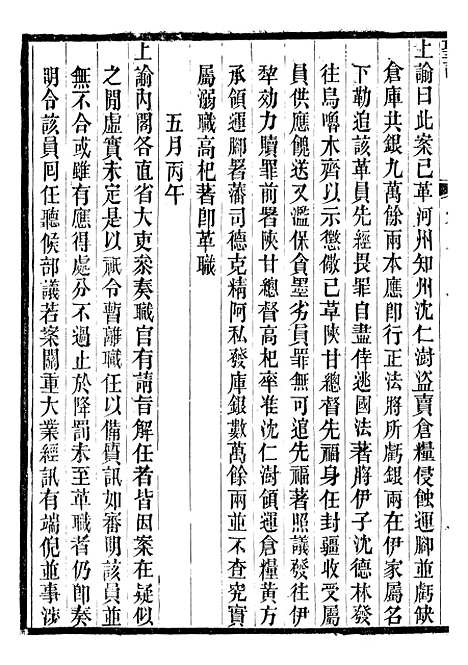 上諭曰此案已革河州知州沈仁澍盜賣倉糧侵蝕運腳並虧缺
倉庫共銀九萬餘兩本應即行正法將所虧銀兩在伊家屬名
下勒追該革員先經畏罪自盡倖逃國法著將伊子沈德林發
往烏嚕木齊以示懲儆已革陝甘總督先福身任封疆收受屬
員供應餽送又濫保貪墨劣員罪無可逭先福著照議發往伊
犂効力贖罪前署陝甘總督高杞率准沈仁澍領運倉糧黃方
承領運腳署藩司德克精阿私發庫銀數萬餘兩並不查究實
屬溺職高杞著卽革職
五月丙午
上諭內閣各直省大吏叅奏職官有請旨解任者皆因案在疑似
之閒虛實未定是以祇令暫離職任以備質訊如審明該員並
無不合或雖有應得處分不過止於降罰未至革職者仍卽奏
明令該員囘任聽候部議若案關重大業經訊有端倪並事涉